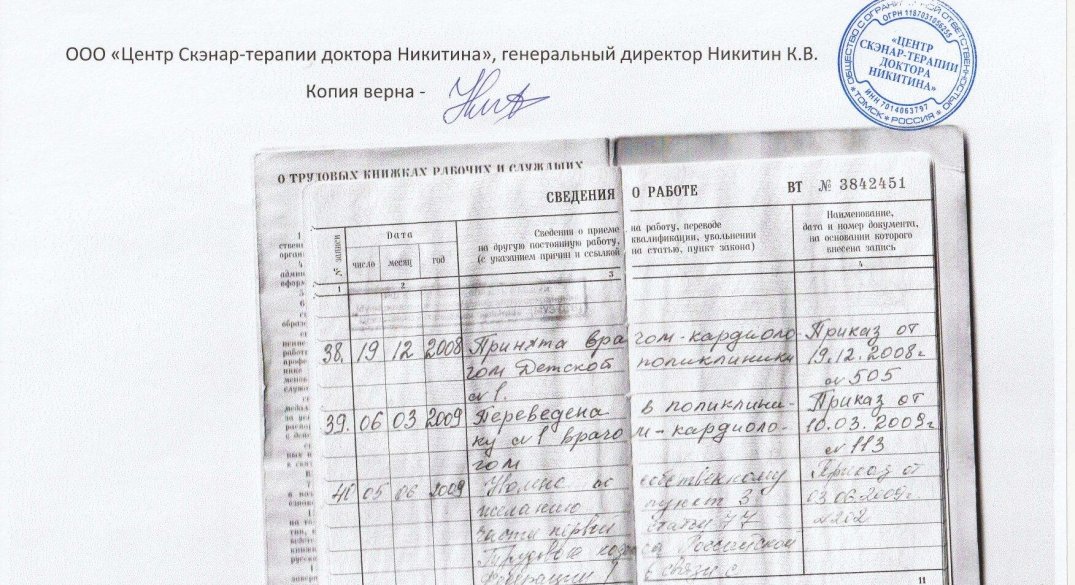 ООО «Центр Скэнар-терапии доктора Никитина», генеральный директор Никитин К.В.
Копия верна -
ОБЩЕСТВО С ОГРАНИЧЕННОЙ ОТВЕТСТВЕННОСТЬЮ
ОГРН 1187031056255
«ЦЕНТР
СКЭНАР-ТЕРАПИИ
ДОКТОРА
НИКИТИНА»
ИНН 7014063797
* ТОМСК * РОССИЯ *
О ТРУДОВЫХ КНИЖКАХ РАБОЧИХ И СЛУЖАЩИХ
СВЕДЕНИЯ О РАБОТЕ ВТ № 3842451
№ записи
Дата
число месяц год
Сведения о приеме на работу, переводе
на другую постоянную работу, квалификации, увольнении
(с указанием причин и ссылкой на статью, пункт закона)
Наименование,
дата и номер документа,
на основании которого
внесена запись
1 2 3 4
38. 19 12 2008 Принята врачом-кардиоло- Приказ от
гом Детской поликлиники 19.12.2008г
№1. №505
39. 06 03 2009 Переведена в поликлини- Приказ от
ку №1 врачом-кардиоло- 10.03.2009г
гом №113
40 05 06 2009 собственному Приказ от
желанию пункт 3 03.06.2009г
части первой статьи 77 №262
Трудового кодекса Российской
Федерации в связи с
11